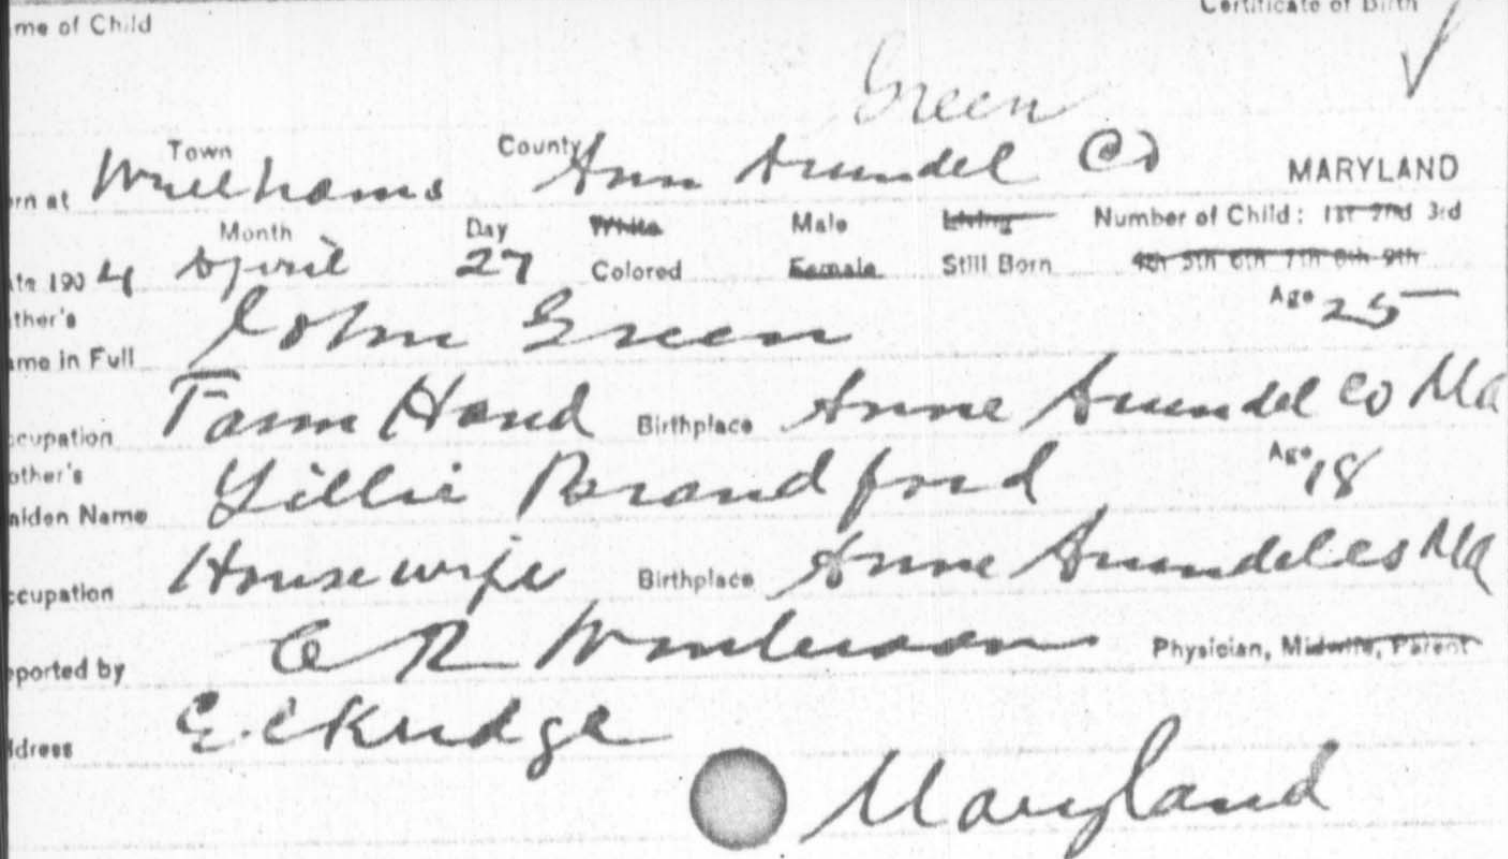 Certificate of Birth
me of Child
Green
Town County
rn at Ann Arundel Co MARYLAND
Month Day White Male Living Number of Child: 1st 2nd 3rd
ate 1904 April 27 Colored Female Still Born 4th 5th 6th 7th 8th 9th
ther's Age 25
ame in Full John Green
ccupation Farm Hand Birthplace Anne Arundel Co Md
other's Age 18
aiden Name Lillie Brandford
ccupation Housewife Birthplace Anne Arundel Co Md
eported by C R Physician, Midwife, Parent
ddress Elkridge
Maryland